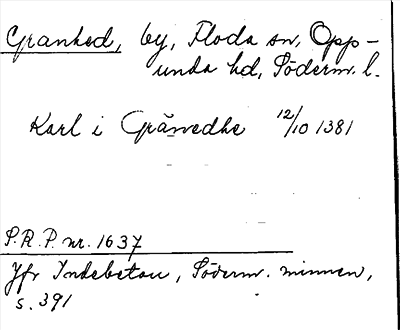 Granhed, by, Floda sn, Opp-
unda hd, Söderm. l.
Karl i Gränedhe 12/10 1381
S.R.P. nr. 1637
Jfr Indebetou, Söderm. minnen,
s. 391